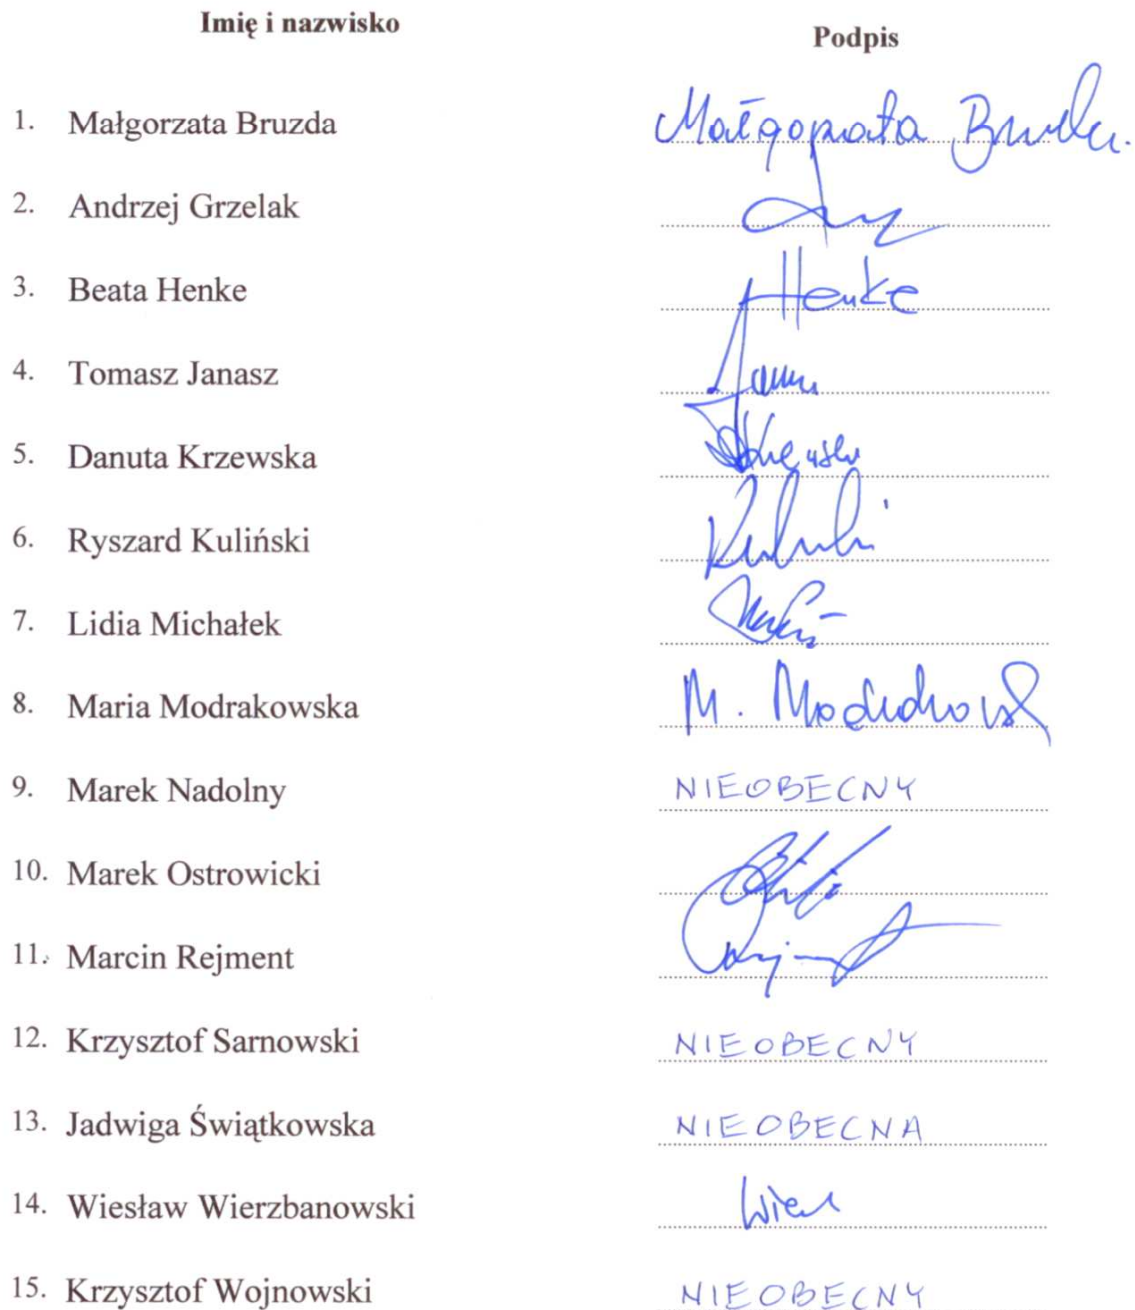 Imię i nazwisko Podpis
1. Małgorzata Bruzda Małgorzata Bruzda
2. Andrzej Grzelak
3. Beata Henke Henke
4. Tomasz Janasz
5. Danuta Krzewska
6. Ryszard Kuliński
7. Lidia Michałek
8. Maria Modrakowska M. Modrakowsk
9. Marek Nadolny NIEOBECNY
10. Marek Ostrowicki
11. Marcin Rejment
12. Krzysztof Sarnowski NIEOBECNY
13. Jadwiga Świątkowska NIEOBECNA
14. Wiesław Wierzbanowski
15. Krzysztof Wojnowski NIEOBECNY